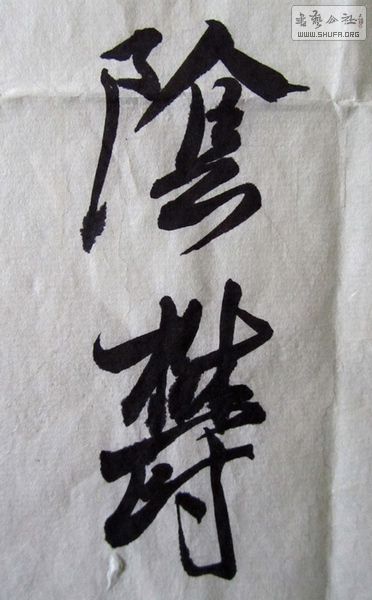 書藝公社
WWW.SHUFA.ORG
陰
欝